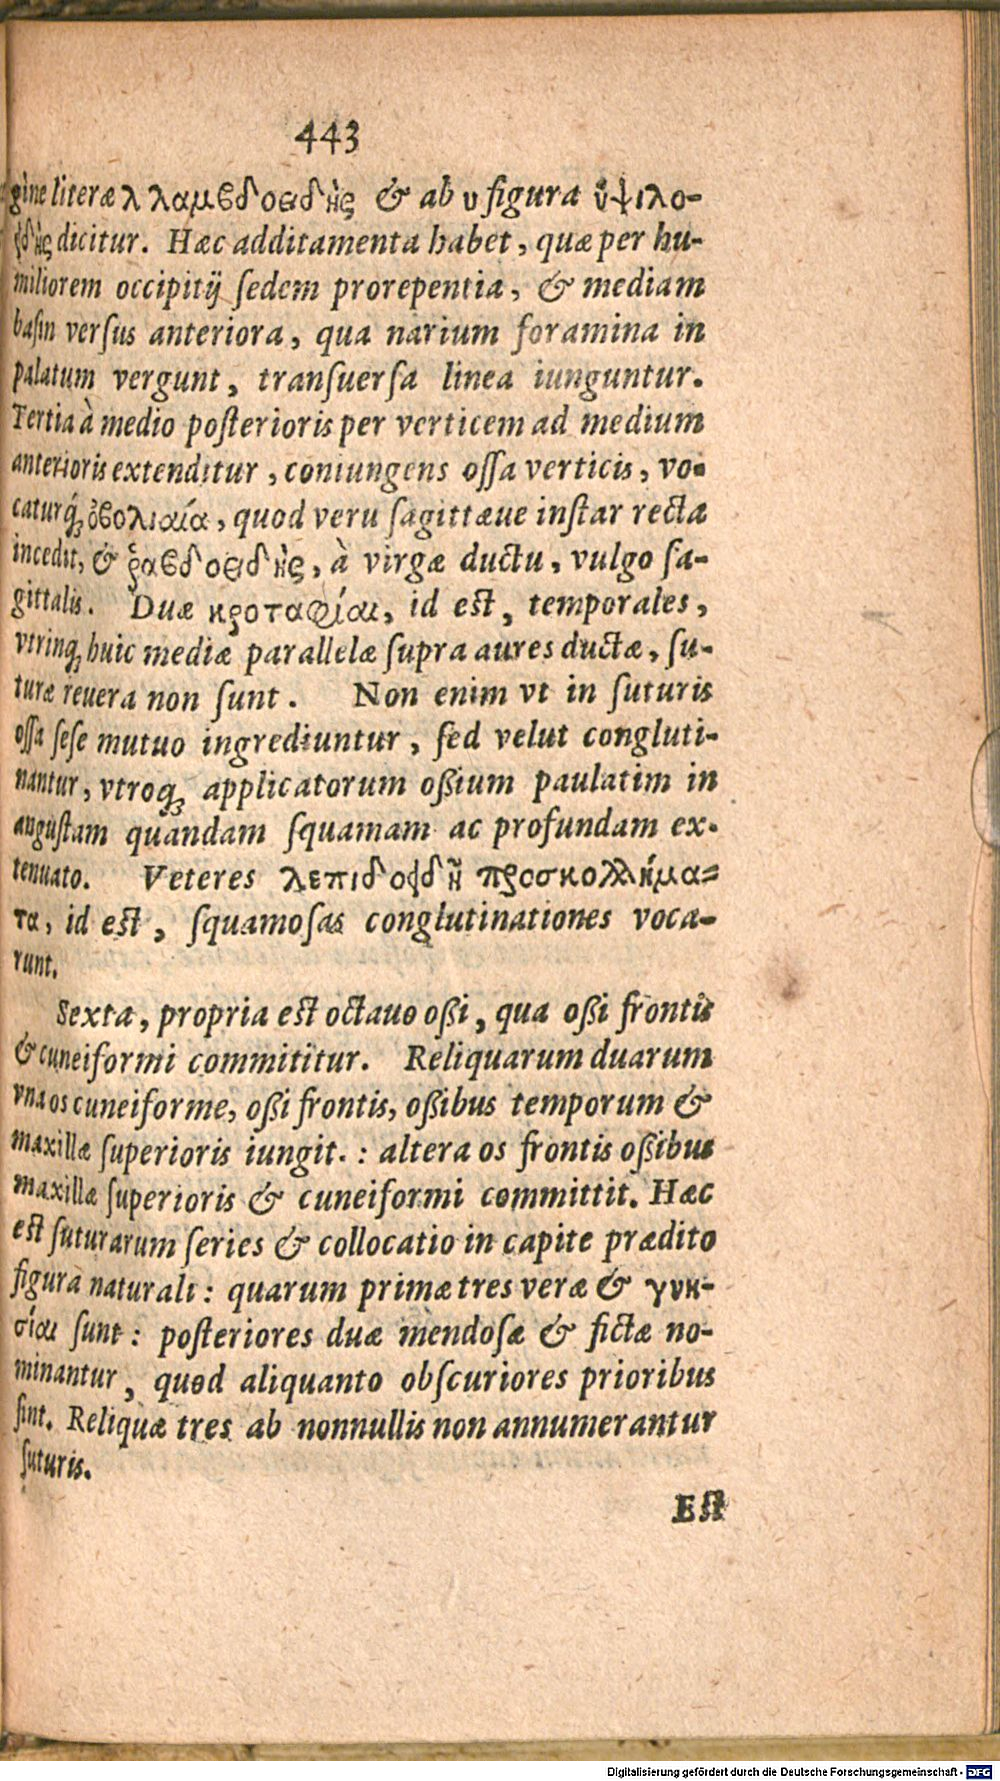 443
gine literæ λ λαμβδοειδὴς & ab υ figura ὑψιλο-
ειδὴς dicitur. Hæc additamenta habet, quæ per hu-
miliorem occipitij ſedem prorepentia, & mediam
baſin verſus anteriora, qua narium foramina in
palatum vergunt, tranſuerſa linea iunguntur.
Tertia à medio poſterioris per verticem ad medium
anterioris extenditur, coniungens oſſa verticis, vo-
caturq́; ὀβολιαία, quod veru ſagittæue inſtar recta
incedit, & ῥαβδοειδὴς, à virgæ ductu, vulgo ſa-
gittalis. Duæ κροταφίαι, id eſt, temporales,
vtrinq; huic mediæ parallelæ ſupra aures ductæ, ſu-
turæ reuera non ſunt. Non enim vt in ſuturis
oſſa ſeſe mutuo ingrediuntur, ſed velut congluti-
nantur, vtroq; applicatorum oßium paulatim in
anguſtam quandam ſquamam ac profundam ex-
tenuato. Veteres λεπιδοειδῆ προσκολλήμα-
τα, id eſt, ſquamoſas conglutinationes voca-
runt.
Sexta, propria eſt octauo oßi, qua oßi frontis
& cuneiformi commititur. Reliquarum duarum
vna os cuneiforme, oßi frontis, oßibus temporum &
maxillæ ſuperioris iungit. : altera os frontis oßibus
maxillæ ſuperioris & cuneiformi committit. Hæc
eſt ſuturarum ſeries & collocatio in capite prædito
figura naturali: quarum primæ tres veræ & γνη-
σίαι ſunt: poſteriores duæ mendoſæ & fictæ no-
minantur, quod aliquanto obſcuriores prioribus
ſint. Reliquæ tres ab nonnullis non annumerantur
ſuturis.
Eſt
Digitalisierung gefördert durch die Deutsche Forschungsgemeinschaft - DFG